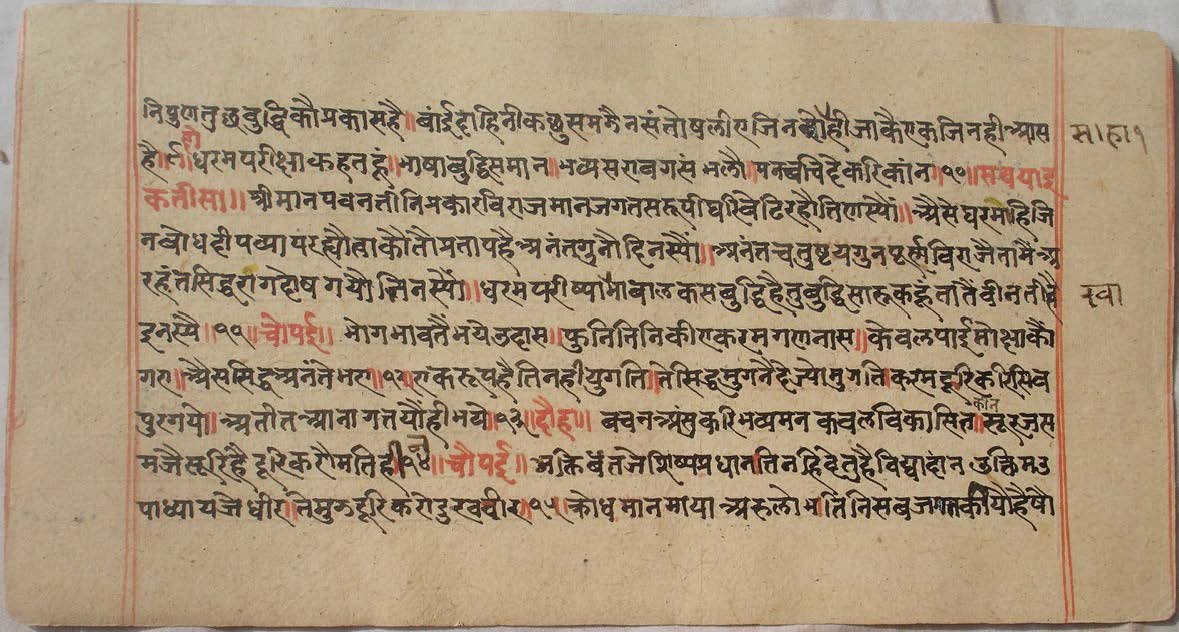 निपुणतुछबुद्धिकौप्रकासहै॥बांईदांहिनीकछुसमझैनसंतोषलीएजिनकौहीजाकैएकजिनहीआस
है॥धरमपरीक्षाकहतहूं॥भाषाबुद्धिसमान॥भव्यसरावगसंभलौ॥पनचपिदेकरिकांन॥१०॥सवयाइ
कतीसा॥श्रीमानपवनतीनिप्रकारविराजमानजगतसरूपीघरविटिरहौतिणस्यौं॥असेघरमाहिजि
नबोधदीपव्यापरह्यौताकौतौप्रतापहैअनंतगुनौदिनस्यौं॥अनंतचतुष्टयगुनपूर्णविराजैतामैंअ
रहंतसिद्धरागदोषगयौजिनस्यौं॥धरमपरीष्यामौबालकसबुद्धिहैतुबुद्धिसारूकहूंतातैंवीनतीहै
इनस्यै॥११॥चोपई॥भोगभावतैंभयेउदास॥फुनितिनिकीएकरमगणनास॥केवलपाईमोक्षाकौं
गए॥असेसिद्धअनंतेभए॥१२॥एकरूपहैतिनहीयुगति॥तेसिद्धमुगनैदेज्योमुगति॥करमदूरिकीरसिव
पुरगये॥अतीतअनागतयौंहीभये॥१३॥दोहा॥वचनअंसुकरिभव्यमनकवलविकासित॥सूरजस
मजैसूरिहैदूरिकरौमतिहीन॥१४॥चौपई॥भक्तिवंतजेशिष्यप्रधानतिनहिदेतुहैविद्यादांनउत्तिमउ
पाध्यायजेधीर॥तेमुझदूरिकरोदुखवीर॥१५॥क्रोधमानमायाअरुलोभतिनिसबजगतकीयोहैषो